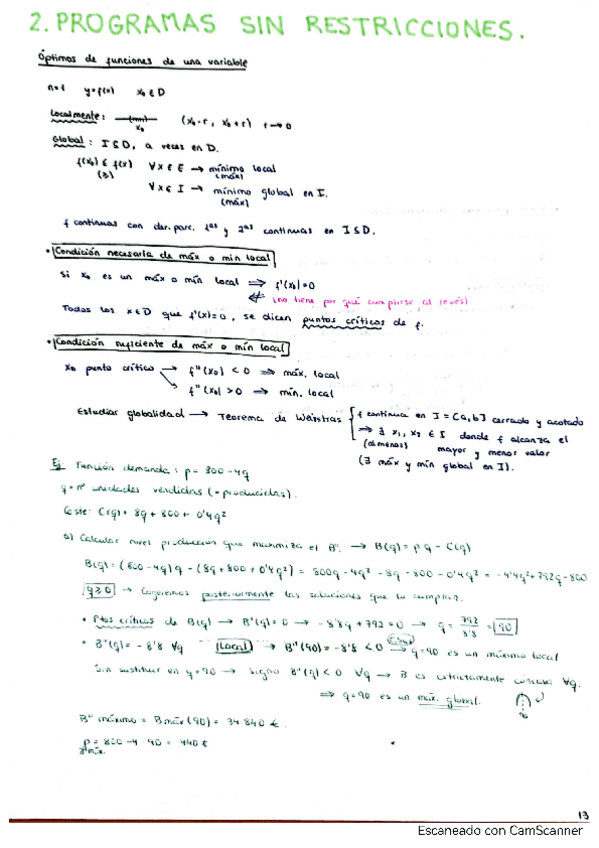 2. PROGRAMAS SIN RESTRICCIONES.
Óptimos de funciones de una variable
n=1 y=f(x) x₀ ∈ D
Localmente: (x₀-r, x₀+r) r→0
Global: I⊆D, a veces en D.
f(x₀) ≤ f(x) ∀x ∈ E → mínimo local
(≥) (máx)
∀x ∈ I → mínimo global en I.
(máx)
f continuas con der. parc. 1as y 2as continuas en I⊆D.
• Condición necesaria de máx o mín local
Si x₀ es un máx o mín local ⇒ f'(x₀)=0
⇍ (no tiene por qué cumplirse al revés)
Todos los x∈D que f'(x)=0, se dicen puntos críticos de f.
• Condición suficiente de máx o mín local
x₀ punto crítico → f''(x₀) < 0 ⇒ máx. local
→ f''(x₀) > 0 ⇒ mín. local
Estudiar globalidad → Teorema de Weistras { f continua en I=[a,b] cerrado y acotado
⇒ ∃ x₁, x₂ ∈ I donde f alcanza el
(al menos) mayor y menor valor
(∃ máx y mín global en I).
Ej Función demanda: p = 800-4q
q = nº unidades vendidas (= producidas).
Coste: C(q) = 8q + 800 + 0'4q²
a) Calcular nivel producción que maximiza el Bº. → B(q) = p·q - C(q)
B(q) = (800-4q)q - (8q+800+0'4q²) = 800q - 4q² - 8q - 800 - 0'4q² = -4'4q²+792q-800
q≥0 → Cogeremos posteriormente las soluciones que lo cumplan.
• Ptos críticos de B(q) → B'(q)=0 → -8'8q+792=0 → q = 792/8'8 = 90
• B''(q) = -8'8 ∀q Local → B''(90) = -8'8 < 0 → q=90 es un máximo local
Sin sustituir en q=90 → signo B''(q)<0 ∀q → B es estrictamente cóncava ∀q.
⇒ q=90 es un máx. global.
Bº máximo = Bmáx(90) = 34840 €.
p = 800-4·90 = 440 €
máx.
13
Escaneado con CamScanner